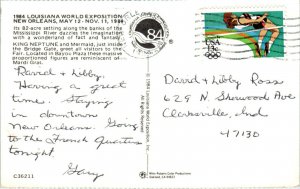 1984 LOUISIANA WORLD EXPOSITION
NEW ORLEANS, MAY 12 - NOV. 11, 1984
Its 82-acre setting along the banks of the
Mississippi River dazzles the imagination
with a wonderland of fact and fantasy.
KING NEPTUNE and Mermaid, just inside
the Bridge Gate, greet all visitors to the
Fair. Located in Bayou Plaza these massive
proportioned figures are reminiscent of
Mardi Gras.
Darrel + Libby.
Having a great
time. Staying
in downtown
New Orleans. Going
to the French quarters
tonight
Gary
C36211
84
USA
Darrel + Libby Ross
629 N. Sherwood Ave
Clarksville, Ind
47130